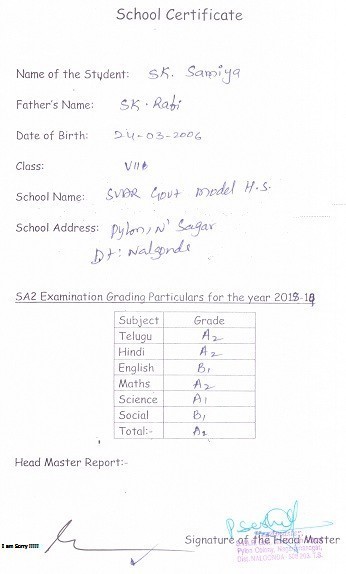 School Certificate
Name of the Student: SK. Samiya
Father's Name: SK. Rafi
Date of Birth: 24-03-2006
Class: VIII
School Name: Govt Model H.S.
School Address: Pylon, N' Sagar
Dt: Nalgonda
SA2 Examination Grading Particulars for the year 2018-19
Subject Grade
Telugu A2
Hindi A2
English B1
Maths A2
Science A1
Social B1
Total:- A2
Head Master Report:-
I am Sorry !!!!!
Signature of the Head Master
Pylon Colony,